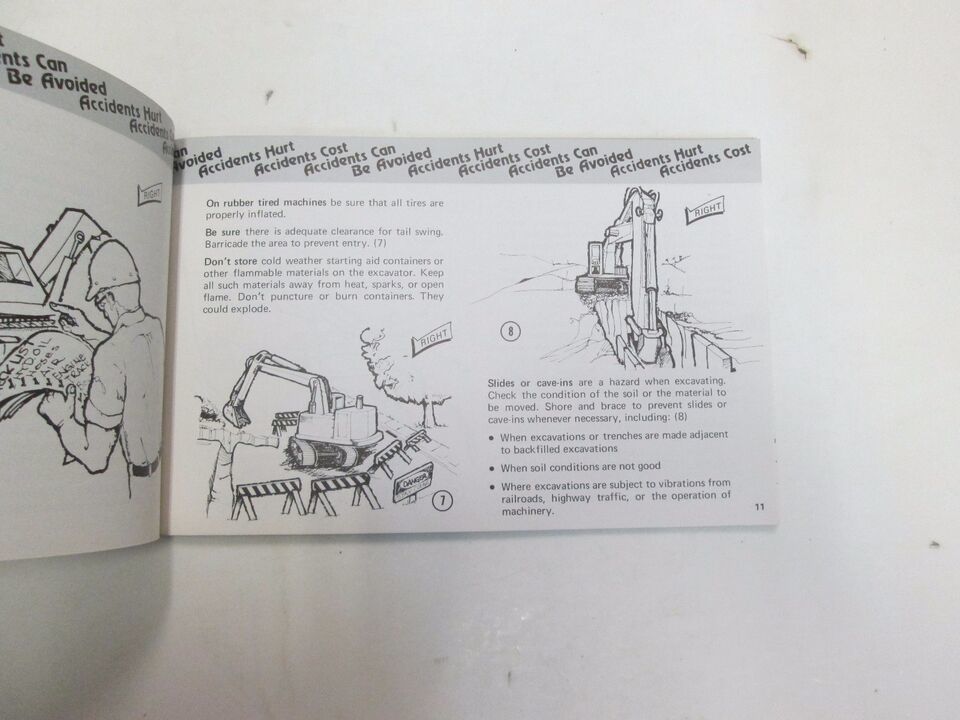 nts Can
Be Avoided
Accidents Hurt
Accidents
RIGHT
OIL
AIR
Avoided
Accidents Hurt
Accidents Cost
Accidents Can
Be Avoided
Accidents Hurt
Accidents Cost
Accidents Can
Be Avoided
Accidents Hurt
Accidents Cost
On rubber tired machines be sure that all tires are
properly inflated.
Be sure there is adequate clearance for tail swing.
Barricade the area to prevent entry. (7)
Don't store cold weather starting aid containers or
other flammable materials on the excavator. Keep
all such materials away from heat, sparks, or open
flame. Don't puncture or burn containers. They
could explode.
RIGHT
DANGER
7
RIGHT
8
Slides or cave-ins are a hazard when excavating.
Check the condition of the soil or the material to
be moved. Shore and brace to prevent slides or
cave-ins whenever necessary, including: (8)
• When excavations or trenches are made adjacent
to backfilled excavations
• When soil conditions are not good
• Where excavations are subject to vibrations from
railroads, highway traffic, or the operation of
machinery.
11